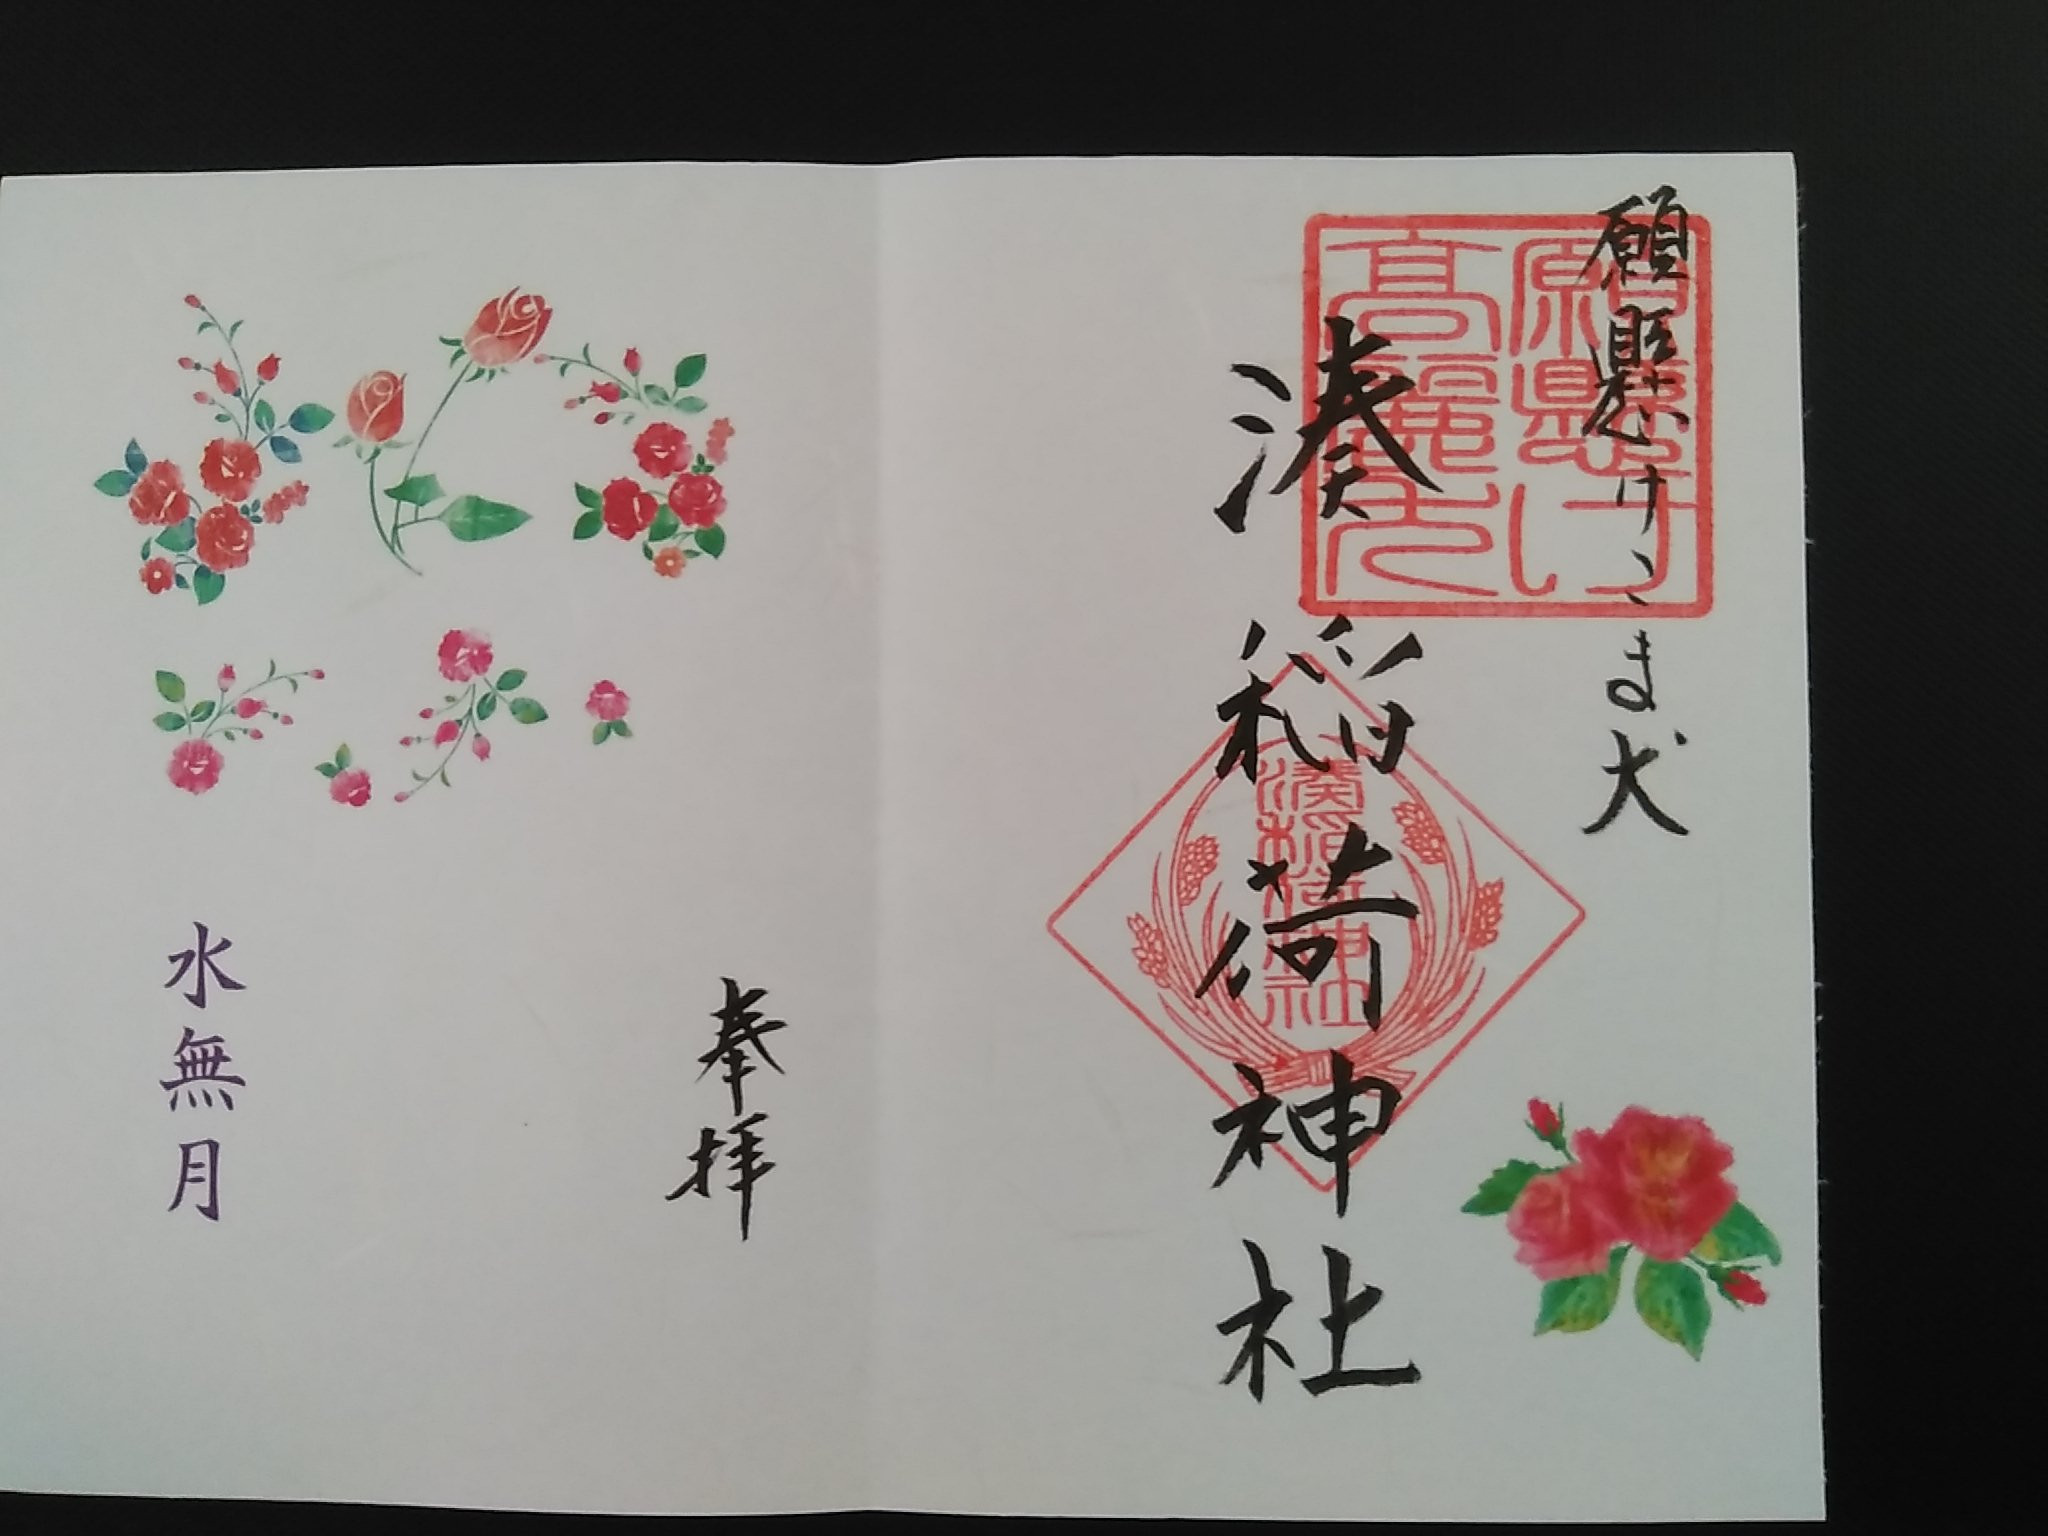 願懸けこま犬
湊稲荷神社
湊稲荷神社
奉拝
水無月